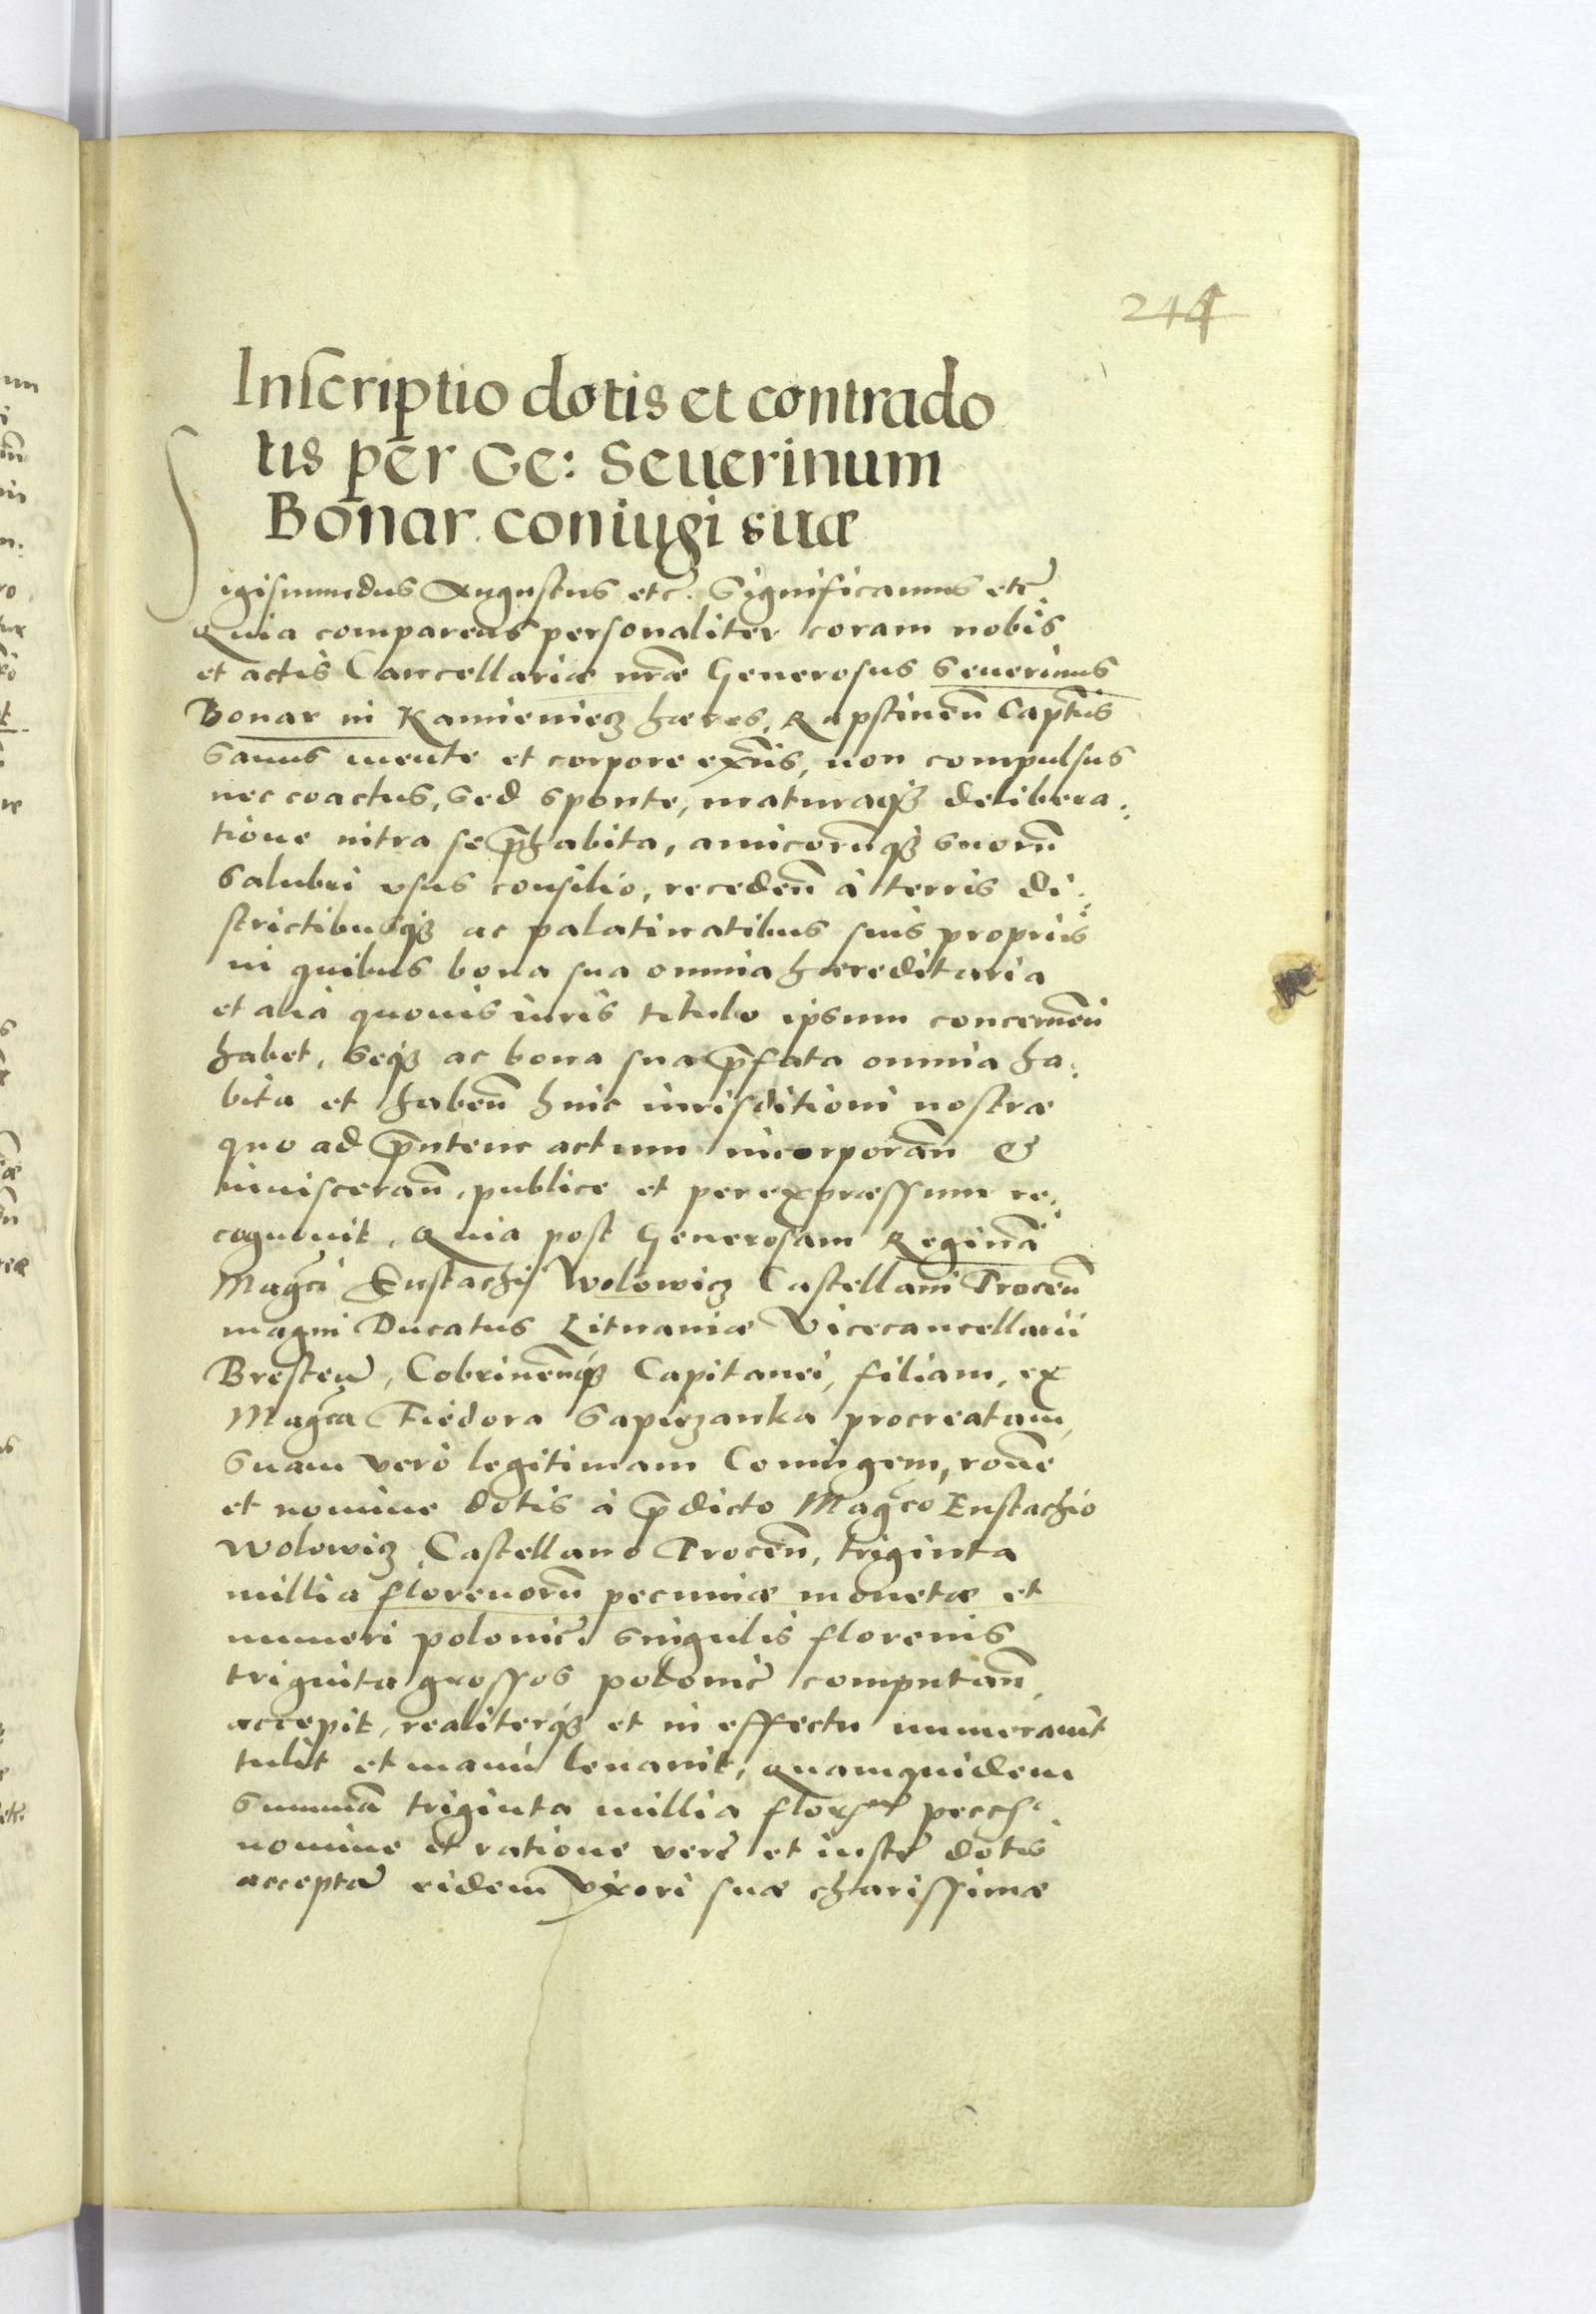 244
Inscriptio dotis et contrado
tis per Ge: Seuerinum
Bonar coniugi suæ
Sigismundus Augustus etc. Significamus etc.
Quia comparens personaliter coram nobis
et actis Cancellariæ nr̃æ Generosus Seuerinus
Bonar in Kamieniecz hæres, Rapstinen̄ Capit̄us
sanus mente et corpore ex̄ns, non compulsus
nec coactus, sed sponte, maturaq3 delibera:
tione intra se p̄habita, amicorūq3 suorū
salubri vsus consilio, receden̄ à terris di:
strictibusq3 ac palatinatibus suis propriis
in quibus bona sua omnia hæreditaria
et alia quouis iuris titulo ipsum concernen̄
habet, seq3 ac bona sua p̄fata omnia ha:
bita et haben̄ huic iurisditioni nostræ
quo ad p̄ntem actum incorporan̄ &
inuisceran̄, publice et per expræssum re:
cognouit, Quia post Generosam Reginā
Mag̃ci Eustachij Wolowicz Castellani Trocen̄
magni Ducatus Lituaniæ Vicecancellarii
Bresten̄, Cobrinen̄q3 Capitanei, filiam, ex
Mag̃ca Fiedora Sapiezanka procreatam,
suam verò legitimam Coniugem, rōne
et nomine dotis à p̄dicto Mag̃co Eustachio
Wolowicz Castellano Trocen̄, triginta
millia florenorū pecuniæ monetæ et
numeri polonic̃. singulis florenis
triginta grossos polonic̃ computan̄,
accepit, realiterq3 et in effectu numerauit
tulit et manu leuauit, Quamquidem
summā triginta millia
nomine et ratione veræ et iustæ dotis
acceptā eidem Vxori suæ charissimæ